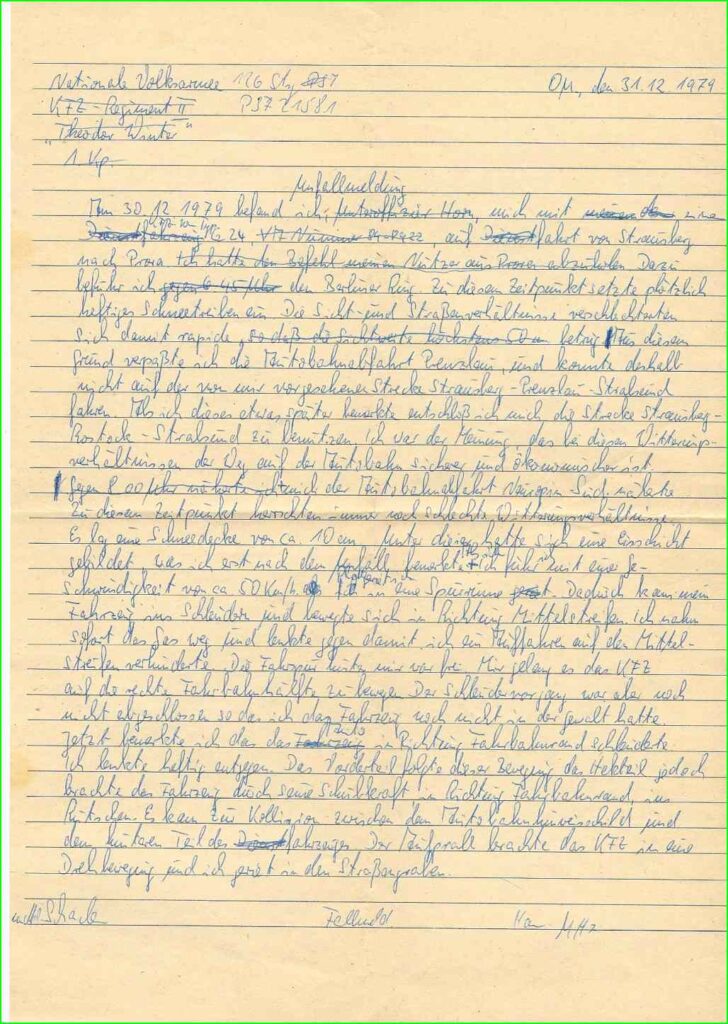 Nationale Volksarmee 126 Stg PSF            O.U., den 31.12.1979
KFZ-Regiment II      PSF 21581
"Theodor Winter"
1. Kp.
Unfallmeldung
Am 30.12.1979 befand ich, Unteroffizier Horn, mich mit einem
24, VK Nummer, auf Dienstfahrt von Strausberg
nach Prora. Ich hatte den Befehl meinen Nutzer aus Prora abzuholen. Dazu
befuhr ich gegen 6.45 Uhr den Berliner Ring. Zu diesem Zeitpunkt setzte plötzlich
heftiges Schneetreiben ein. Die Sicht- und Straßenverhältnisse verschlechterten
sich damit rapide, so daß die Sichtweite höchstens 50 m betrug. Aus diesem
Grund verpaßte ich die Autobahnabfahrt Prenzlau, und konnte deshalb
nicht auf der von mir vorgesehener Strecke Strausberg-Prenzlau-Stralsund
fahren. Als ich dieses etwas später bemerkte entschloß ich mich die Strecke Strausberg-
Rostock-Stralsund zu benutzen. Ich war der Meinung, das bei diesen Witterungs-
verhältnissen der Weg auf der Autobahn sicherer und ökonomischer ist.
Gegen 8.00 Uhr näherte ich mich der Autobahnabfahrt Neuruppin Süd.
Zu diesem Zeitpunkt herrschten immer noch schlechte Witterungsverhältnisse.
Es lag eine Schneedecke von ca. 10 cm. Unter dieser hatte sich eine Eisschicht
gebildet, was ich erst nach dem Vorfall bemerkte. Ich fuhr mit einer Ge-
schwindigkeit von ca 50 Km/h. als ich in eine Spurrinne geriet. Dadurch kam mein
Fahrzeug ins Schleudern und bewegte sich in Richtung Mittelstreifen. Ich nahm
sofort das Gas weg und lenkte gegen damit ich ein Auffahren auf den Mittel-
streifen verhinderte. Die Fahrspur hinter mir war frei. Mir gelang es das KFZ
auf die rechte Fahrbahnhälfte zu bewegen. Der Schleudervorgang war aber noch
nicht abgeschlossen so das ich das Fahrzeug noch nicht in der gewalt hatte.
Jetzt bemerkte ich das das Fahrzeug in Richtung Fahrbahnrand schleuderte.
Ich lenkte heftig entgegen. Das Vorderteil folgte dieser Bewegung das Heckteil jedoch
brachte das Fahrzeug durch seine Schubkraft in Richtung Fahrbahnrand, ins
Rutschen. Es kam zur Kollission zwischen dem Autobahnhinweisschild und
dem hinteren Teil des Dienstfahrzeuges. Der Aufprall brachte das KFZ in eine
Drehbewegung und ich geriet in den Straßengraben.